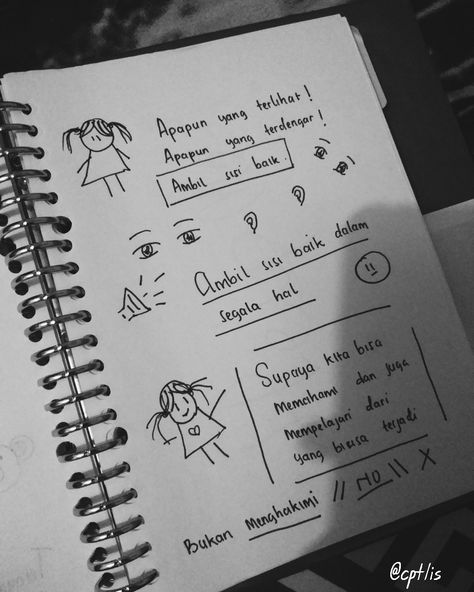 Apapun yang terlihat!
Apapun yang terdengar!
Ambil sisi baik.
Ambil sisi baik dalam
segala hal
Supaya kita bisa
Memahami dan juga
Mempelajari dari
yang biasa terjadi
Bukan Menghakimi // NO // X
@cptlis